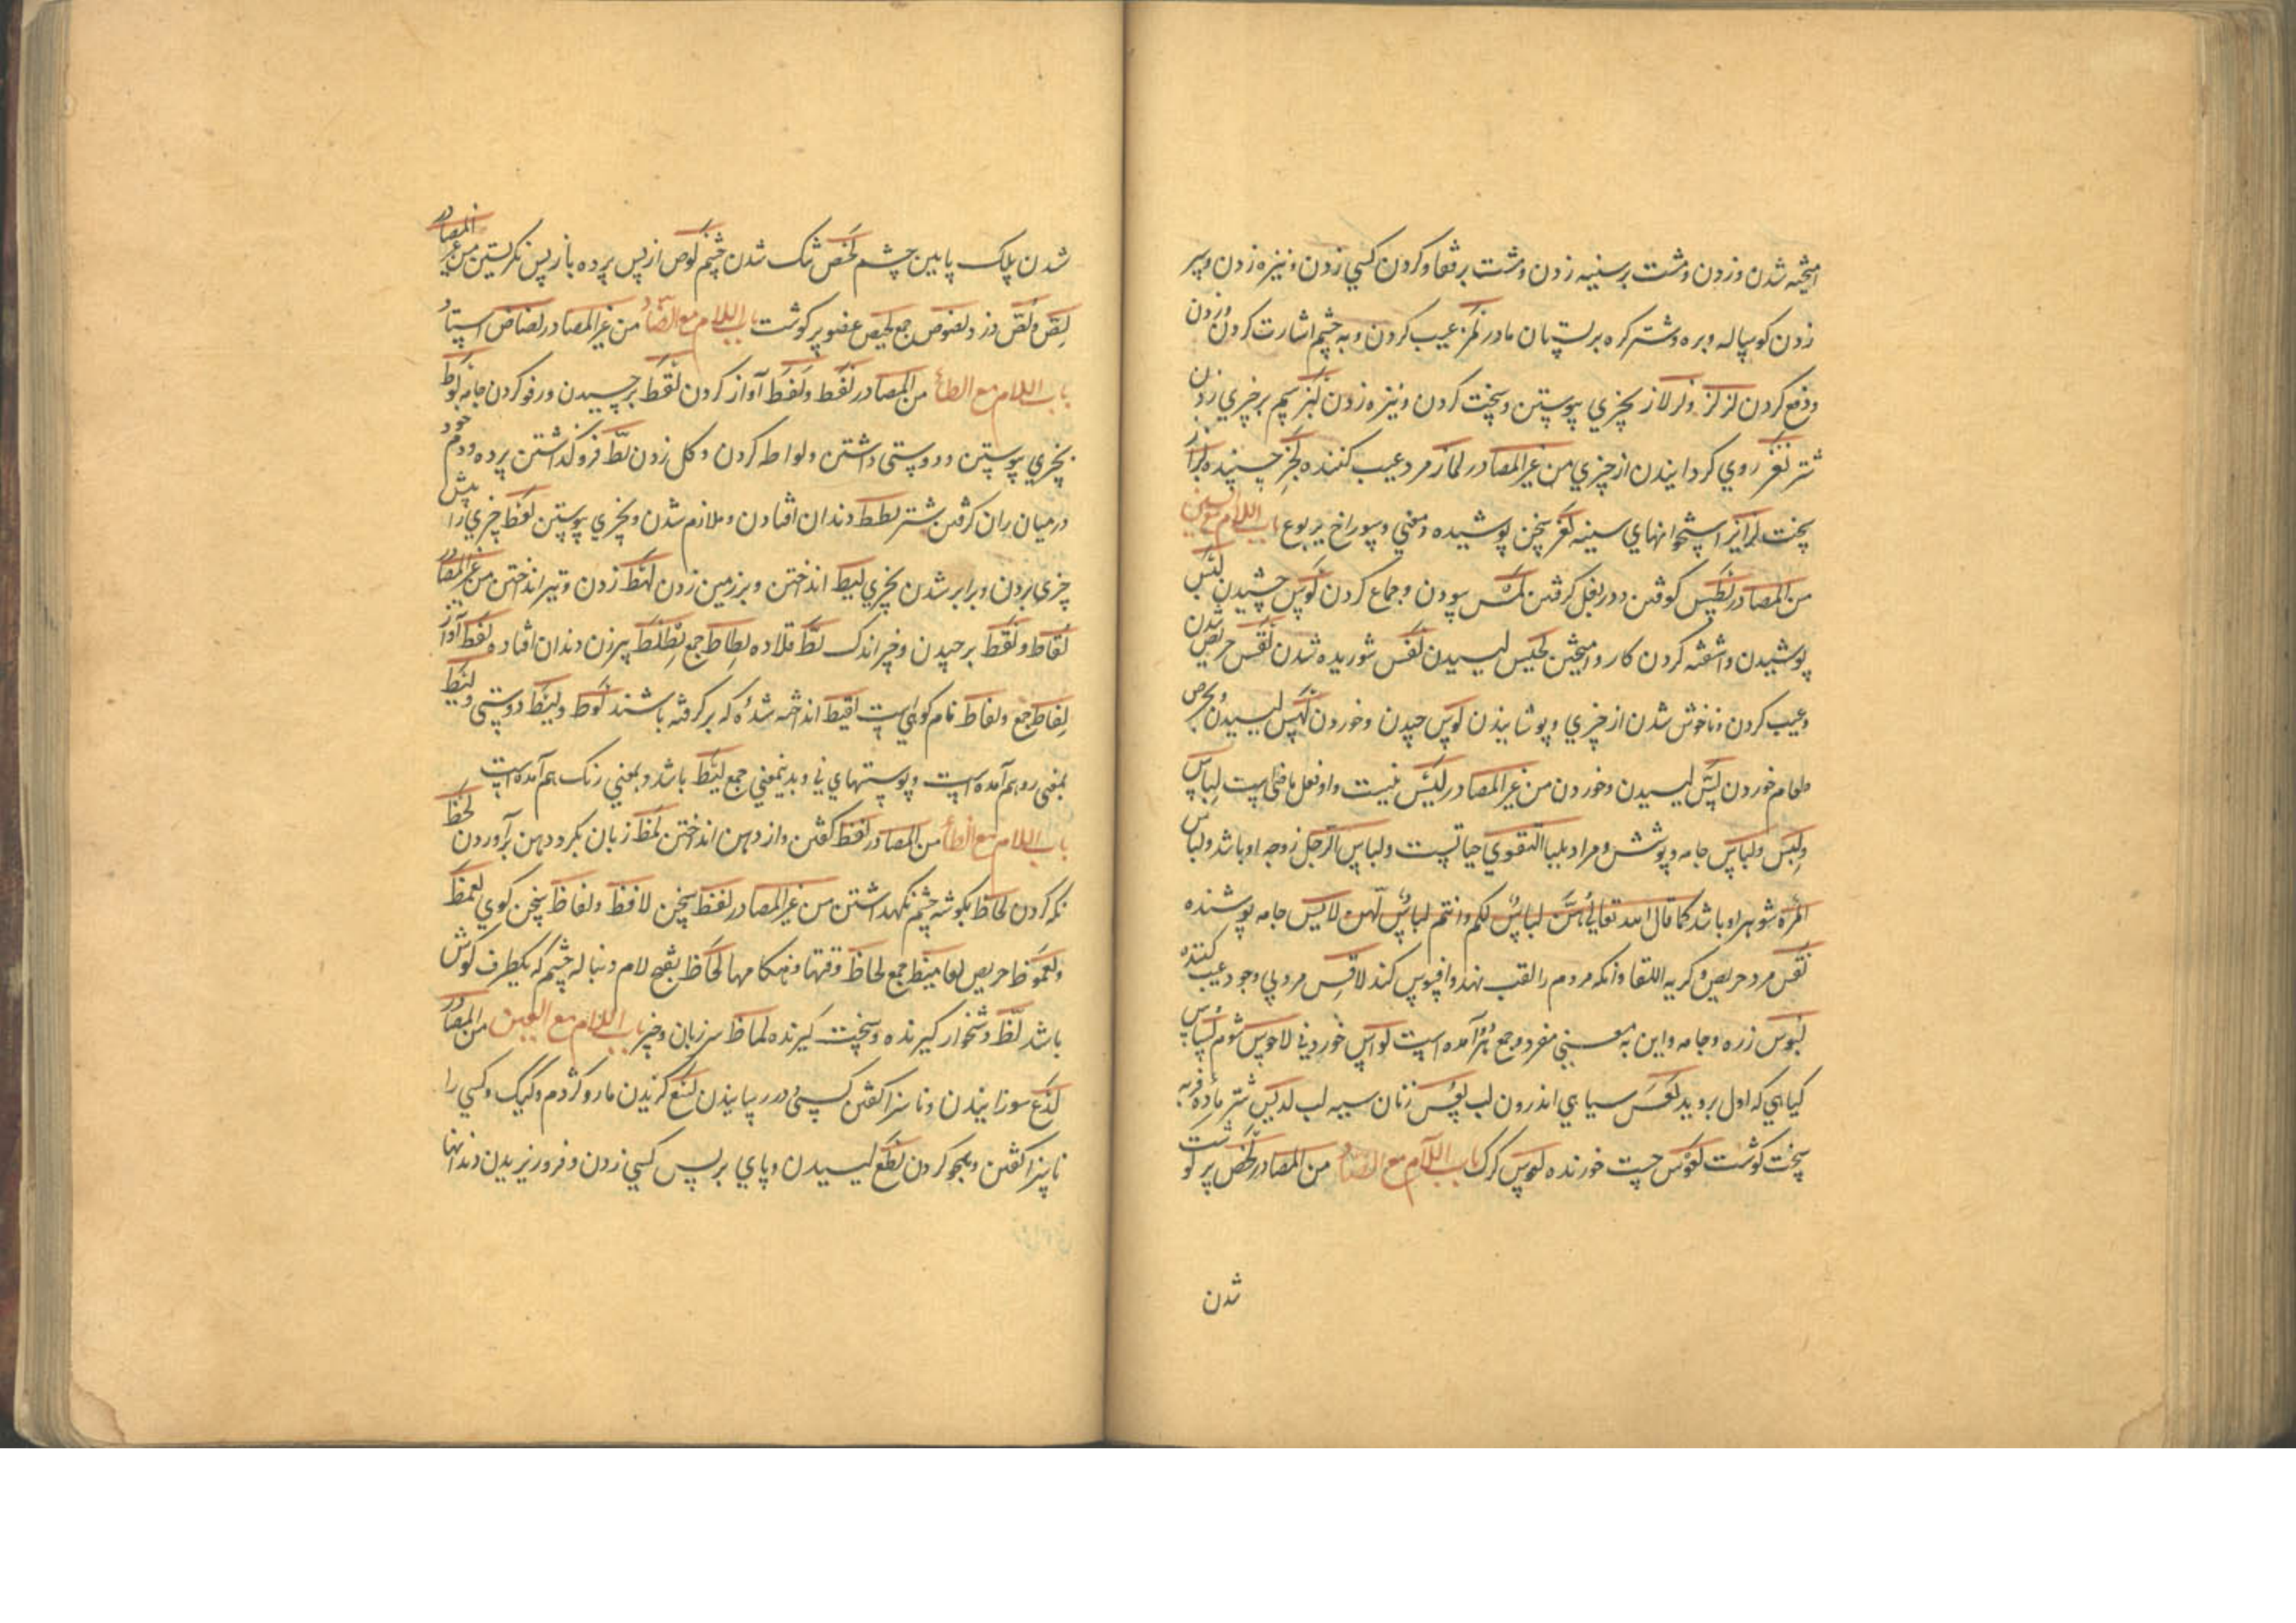 آمیخته شدن وزدن ومشت بر سینه زدن ومشت برقفا وکردن کسی زدن ونیزه زدن وسر
زدن کوساله وبره وشتر کره بر پستان مادر لمز عیب کردن وبه چشم اشارت کردن وزدن
ودفع کردن لز لزز ولزلاز بچیزی پیوستن وسخت کردن ونیزه زدن لبز سم بر چیزی زدن
شتر لغز روی کردانیدن از چیزی من غیر المصادر لماز مرد عیب کننده لحز
سخت لزایز استخوانهای سینه لغز سخن پوشیده معنی وسوراخ یربوع باب اللام مع السین
من المصادر لطس کوفتن ودر بغل کرفتن لمس سودن وجماع کردن لوس چشیدن لبس
پوشیدن وآشفته کردن کار وآمیختن لحس لیسیدن لقس شوریده شدن لقس حریص شدن
وعیب کردن وناخوش شدن از چیزی وپوشانیدن لوس چیدن وخوردن لهس لیسیدن وبحرص
طعام خوردن لس لیسیدن وخوردن من غیر المصادر لیس نیست واو فعل ماضی است لباس
ولبس ولباس جامه وپوشش ومراد بلباس التقوی حیاتست ولباس الرجل زوجه او باشد ولباس
المرة شوهر او باشد کما قال الله تعالی هن لباس لکم وانتم لباس لهن لابس جامه پوشنده
لقس مرد حریص وکریه اللقا وآنکه مردم را لقب نهد وافسوس کند لاقس مرد بی وجود عیب کننده
لبوس زره وجامه واین به معنی مفرد وجمع هر دو آمده است لواس خوردنی لاحوس شوم لساس
کیاهی که اول بروید لعس سیاهی اندرون لب لعس زنان سیه لب لدیس شتر ماده فربه
سخت کوشت لعوس چست خورنده لعوس کرک باب اللام مع الصاد من المصادر لخص پر کوشت
شدن
شدن پلک پایین چشم لخص تنک شدن چشم لوص از پس پرده باز پس نکریستن من غیر المصادر
لص ولص دزد ولصوص جمع لخیص عضو پر کوشت باب اللام مع الضاد من غیر المصادر لضاض استاد
باب اللام مع الطاء من المصادر لغط ولغط آواز کردن لقط برچیدن ورفو کردن جامه لوط
بچیزی پیوستن ودوستی داشتن ولواط کردن وکل زدن لط فرو کذاشتن پرده ودم خود
در میان ران کرفتن شتر لطط دندان افتادن وملازم شدن وبچیزی پیوستن لعط چیزی را پیش
چیزی بردن وبرابر شدن بچیزی لبط انداختن وبر زمین زدن لهط زدن وتیر انداختن من غیر المصادر
لقاط ولقط برچیدن وچیز اندک لط قلاده لطاط جمع لطلط پیرزن دندان افتاده لغط آواز
لغاط جمع ولغاط نام کوهی است لقیط انداخته شده که بر کرفته باشند لوط ولیط دوستی ولیط
بمعنی رو هم آمده است وپوستهای نی وبدینمعنی جمع لیط باشد وبمعنی رنک هم آمده است
باب اللام مع الظاء من المصادر لفظ کفتن واز دهن انداختن لمظ زبان بکرد دهن برآوردن لحظ
نکه کردن لحاظ بکوشه چشم نکهداشتن من غیر المصادر لفظ سخن لافظ ولفاظ سخن کوی لعمظ
ولعموظ حریص لعامیظ جمع لحاظ وقتها وهنکامها لحاظ بفتح لام دنباله چشم که بطرف کوش
باشد لظ دشخوار کیرنده وسخت کیرنده لماظ سر زبان وچیز باب اللام مع العین من المصادر
لذع سوزانیدن وناسزا کفتن کسی ودرد رسانیدن لسع کزیدن مار وکژدم وکیک وکسی را
ناسزا کفتن وهجو کردن لطع لیسیدن وپای بر پس کسی زدن وفرو ریزیدن دندانها